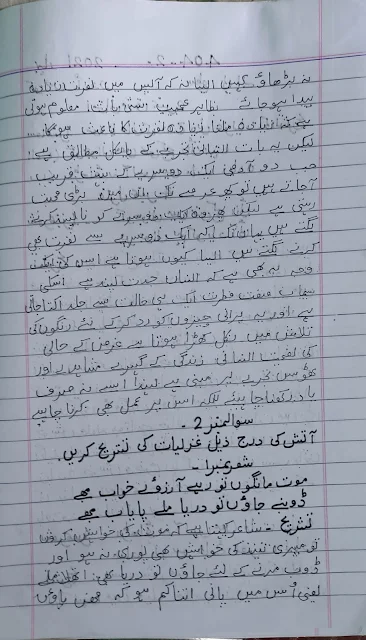 نہ بڑھاؤ کہیں ایسا نہ کہ آپس میں نفرت زیادہ
پیدا ہو جائے بظاہر عجیب سی بات معلوم ہوتی
ہے کہ زیادہ ملنا زیادہ نفرت کا باعث ہوگا۔
لیکن یہ بات انسانی تجربے کے بالکل مطابق ہے
جب دو آدمی ایک دوسرے کے بہت قریب
آجاتے ہیں تو کچھ عرصے تک ان میں بڑی محبت
رہتی ہے لیکن پھر وہ ایک دوسرے کو ناپسند کرنے
لگتے ہیں یہاں تک کہ ایک دوسرے سے نفرت بھی
کرنے لگتے ہیں ایسا کیوں ہوتا ہے اس کی ایک
وجہ یہ بھی ہے کہ انسان جدت پسند ہے اسکی
سیماب صفت فطرت ایک ہی حالت سے جلد اکتا جاتی
ہے اور یہ پرانی چیزوں کو رد کر کے نئے رنگوں کی
تلاش میں نکل کھڑا ہوتا ہے غرض کے حالی
کی نصیحت انسانی زندگی کے گہرے مشاہدے اور
ٹھوس تجربے پر مبنی ہے لہذا اسے نہ صرف
یاد رکھنا چاہیئے بلکہ اس پر عمل بھی کرنا چاہیے
سوالنمبر 2-
آتش کی درج ذیل غزلیات کی تشریح کریں۔
شعر نمبر 1 -
موت مانگوں تو رہے آرزوئے خواب مجھے
ڈوبنے جاؤں تو دریا ملے پایاب مجھے
تشریح - شاعر کہتا ہے کہ موت کی خواہش کروں
تو میری نیند کی خواہش بھی پوری نہ ہو اور
ڈوب مرنے کے لئے جاؤں تو دریا بھی اتھلا ملے
یعنی اُس میں پانی اتنا کم ہو کہ محض پاؤں